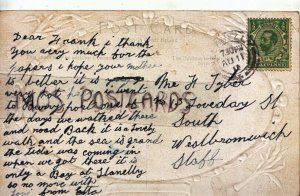 CARD
Dear Frank i thank
you very much for the
papers i hope your mother
is better it is
MFS POSTCARDS
to Burry
the days we walked there
and road Back it is a lovely
walk and the sea is grand
the tide was coming in
when we got there it is
only a Bay at Llanelly
so no more with
from Etta
Mr F Tyler
Loveday St
South
Westbromswich
Staff
7.30PM
AU 11